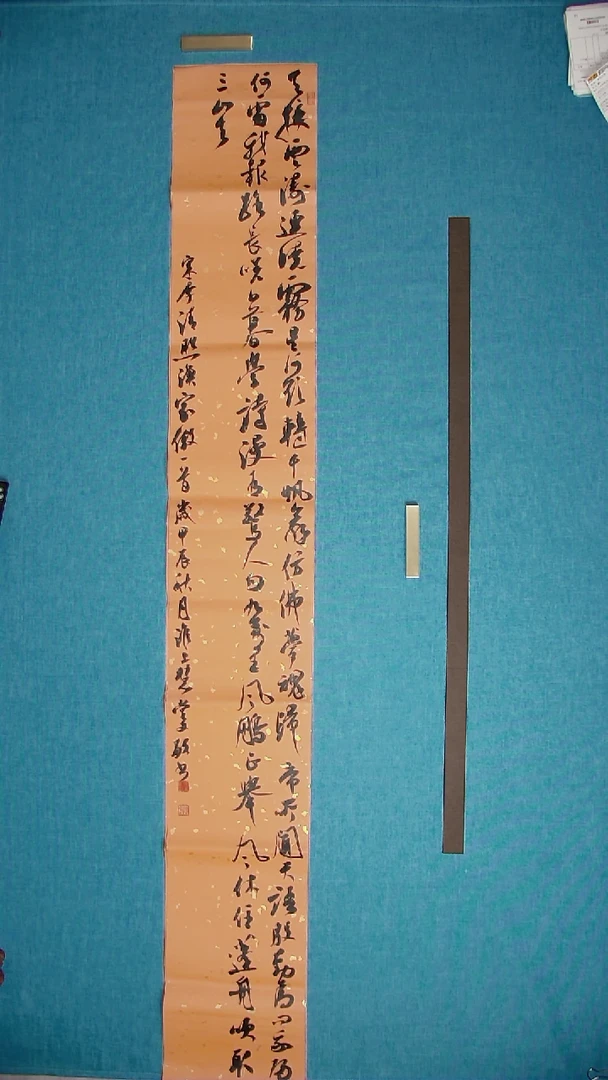 天接雲濤連曉霧星河欲轉千帆舞仿佛夢魂歸帝所聞天語殷勤問我歸
何處我報路長嗟日暮學詩漫有驚人句九萬里風鵬正舉風休住蓬舟吹取
三山去
宋李清照漁家傲一首歲甲辰秋月淮上楚堂敬書